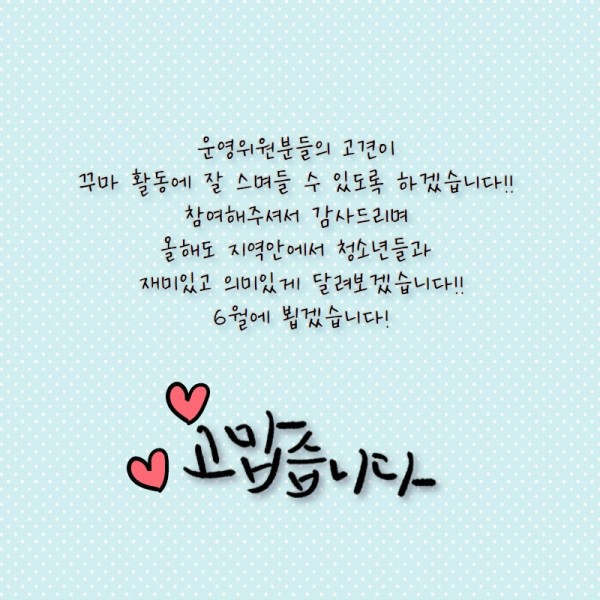 운영위원분들의 고견이
꾸마 활동에 잘 스며들 수 있도록 하겠습니다!!
참여해주셔서 감사드리며
올해도 지역안에서 청소년들과
재미있고 의미있게 달려보겠습니다!!
6월에 뵙겠습니다!
고맙습니다